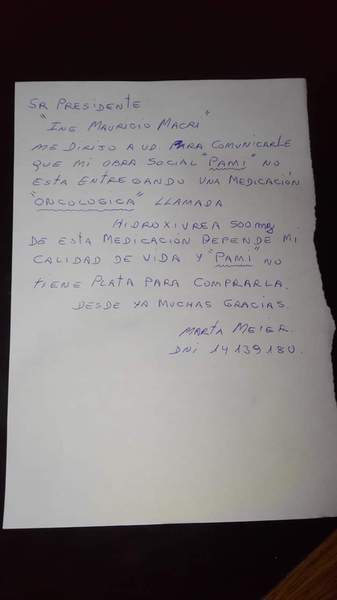 SR PRESIDENTE
"ING MAURICIO MACRI"
ME DIRIJO A UD. PARA COMUNICARLE
QUE MI OBRA SOCIAL "PAMI" NO
ESTA ENTREGANDO UNA MEDICACIÓN
"ONCOLOGICA" LLAMADA
HIDROXIUREA 500mg
DE ESTA MEDICACIÓN DEPENDE MI
CALIDAD DE VIDA Y "PAMI" NO
TIENE PLATA PARA COMPRARLA.
DESDE YA MUCHAS GRACIAS.
MARTA MEIER.
DNI 14139180.